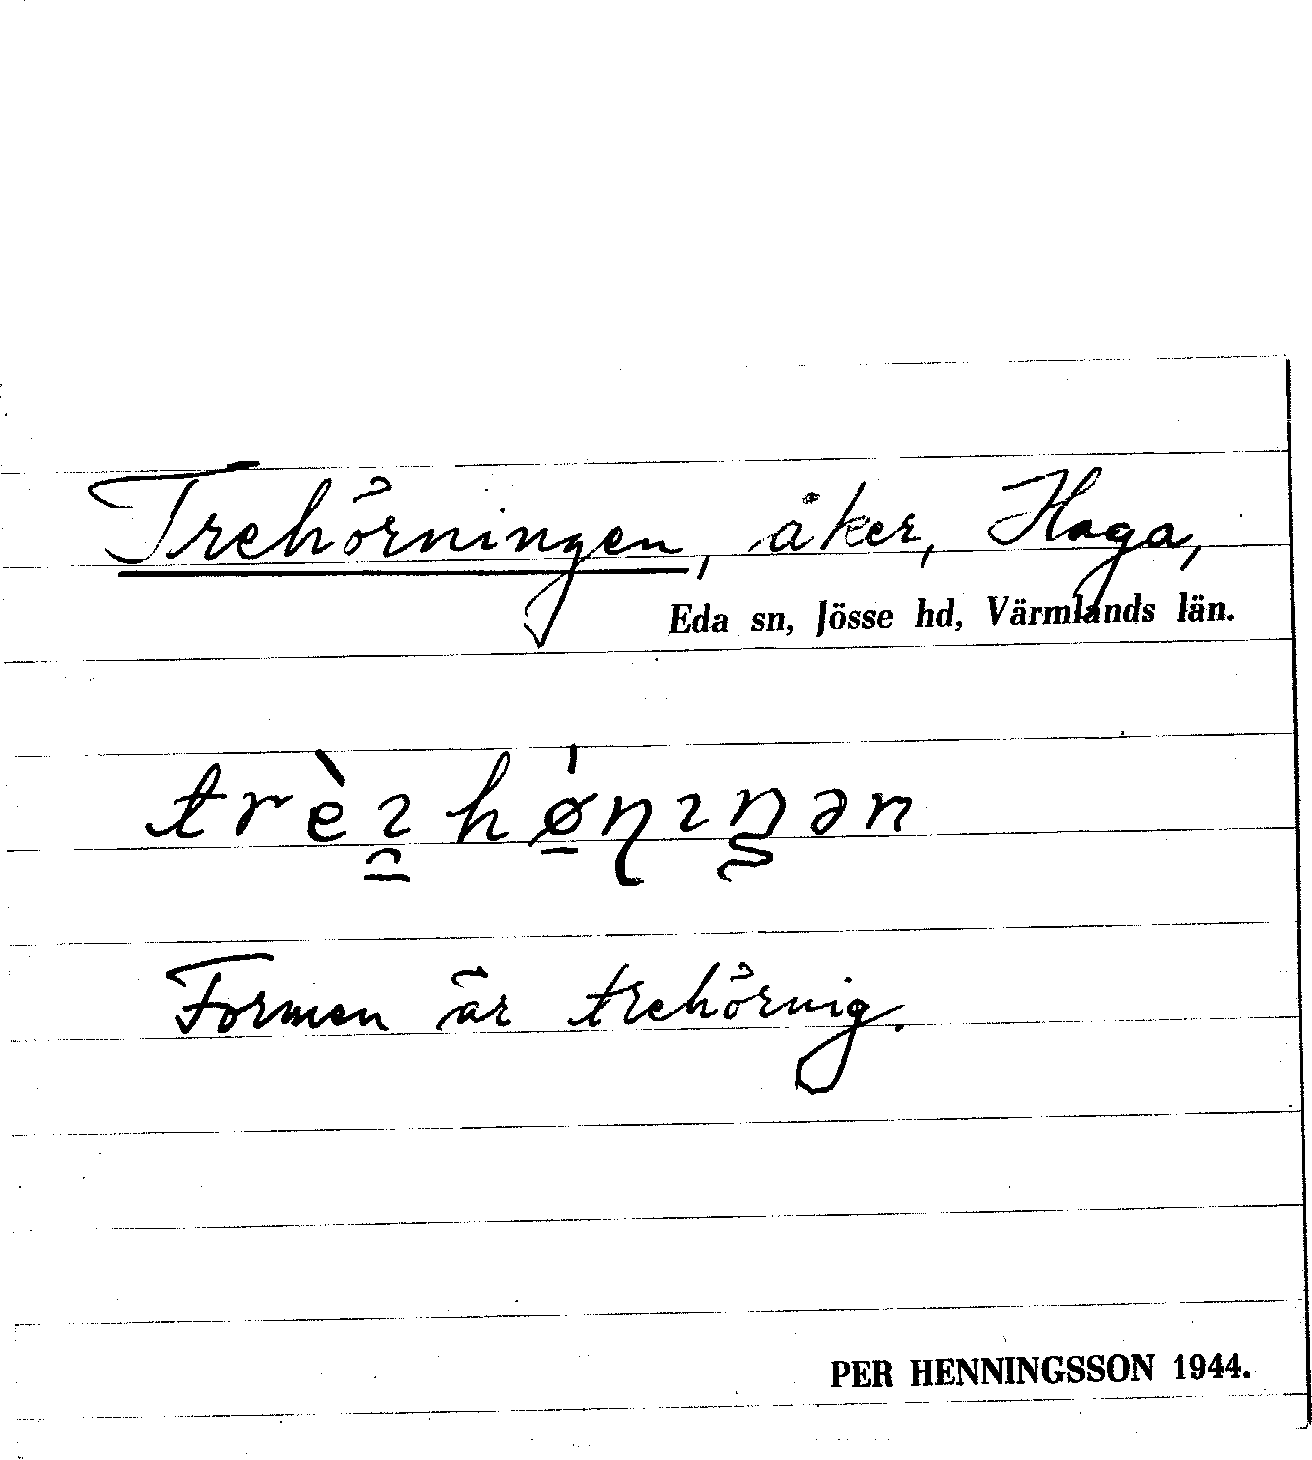 Trehörningen, åker, Haga,
Eda sn, Jösse hd, Värmlands län.
trèɿ̯hǿ̱ɳɿŋən
Formen är trehörnig.
PER HENNINGSSON 1944.